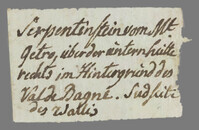 Serpentenstein vom Mt
Getro, über der untern hütte
rechts im Hintergrund des
Val de Bagne. Südseite
des Wallis